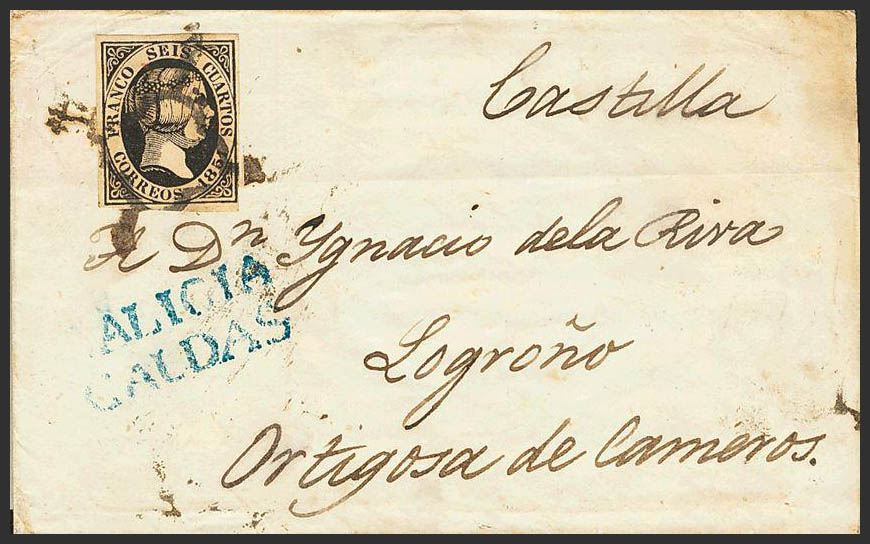 FRANCO SEIS CUARTOS
CORREOS 185
Castilla
A Dn Ygnacio dela Riva
ALICIA
CALDAS
Logroño
Ortigosa de Cameros.